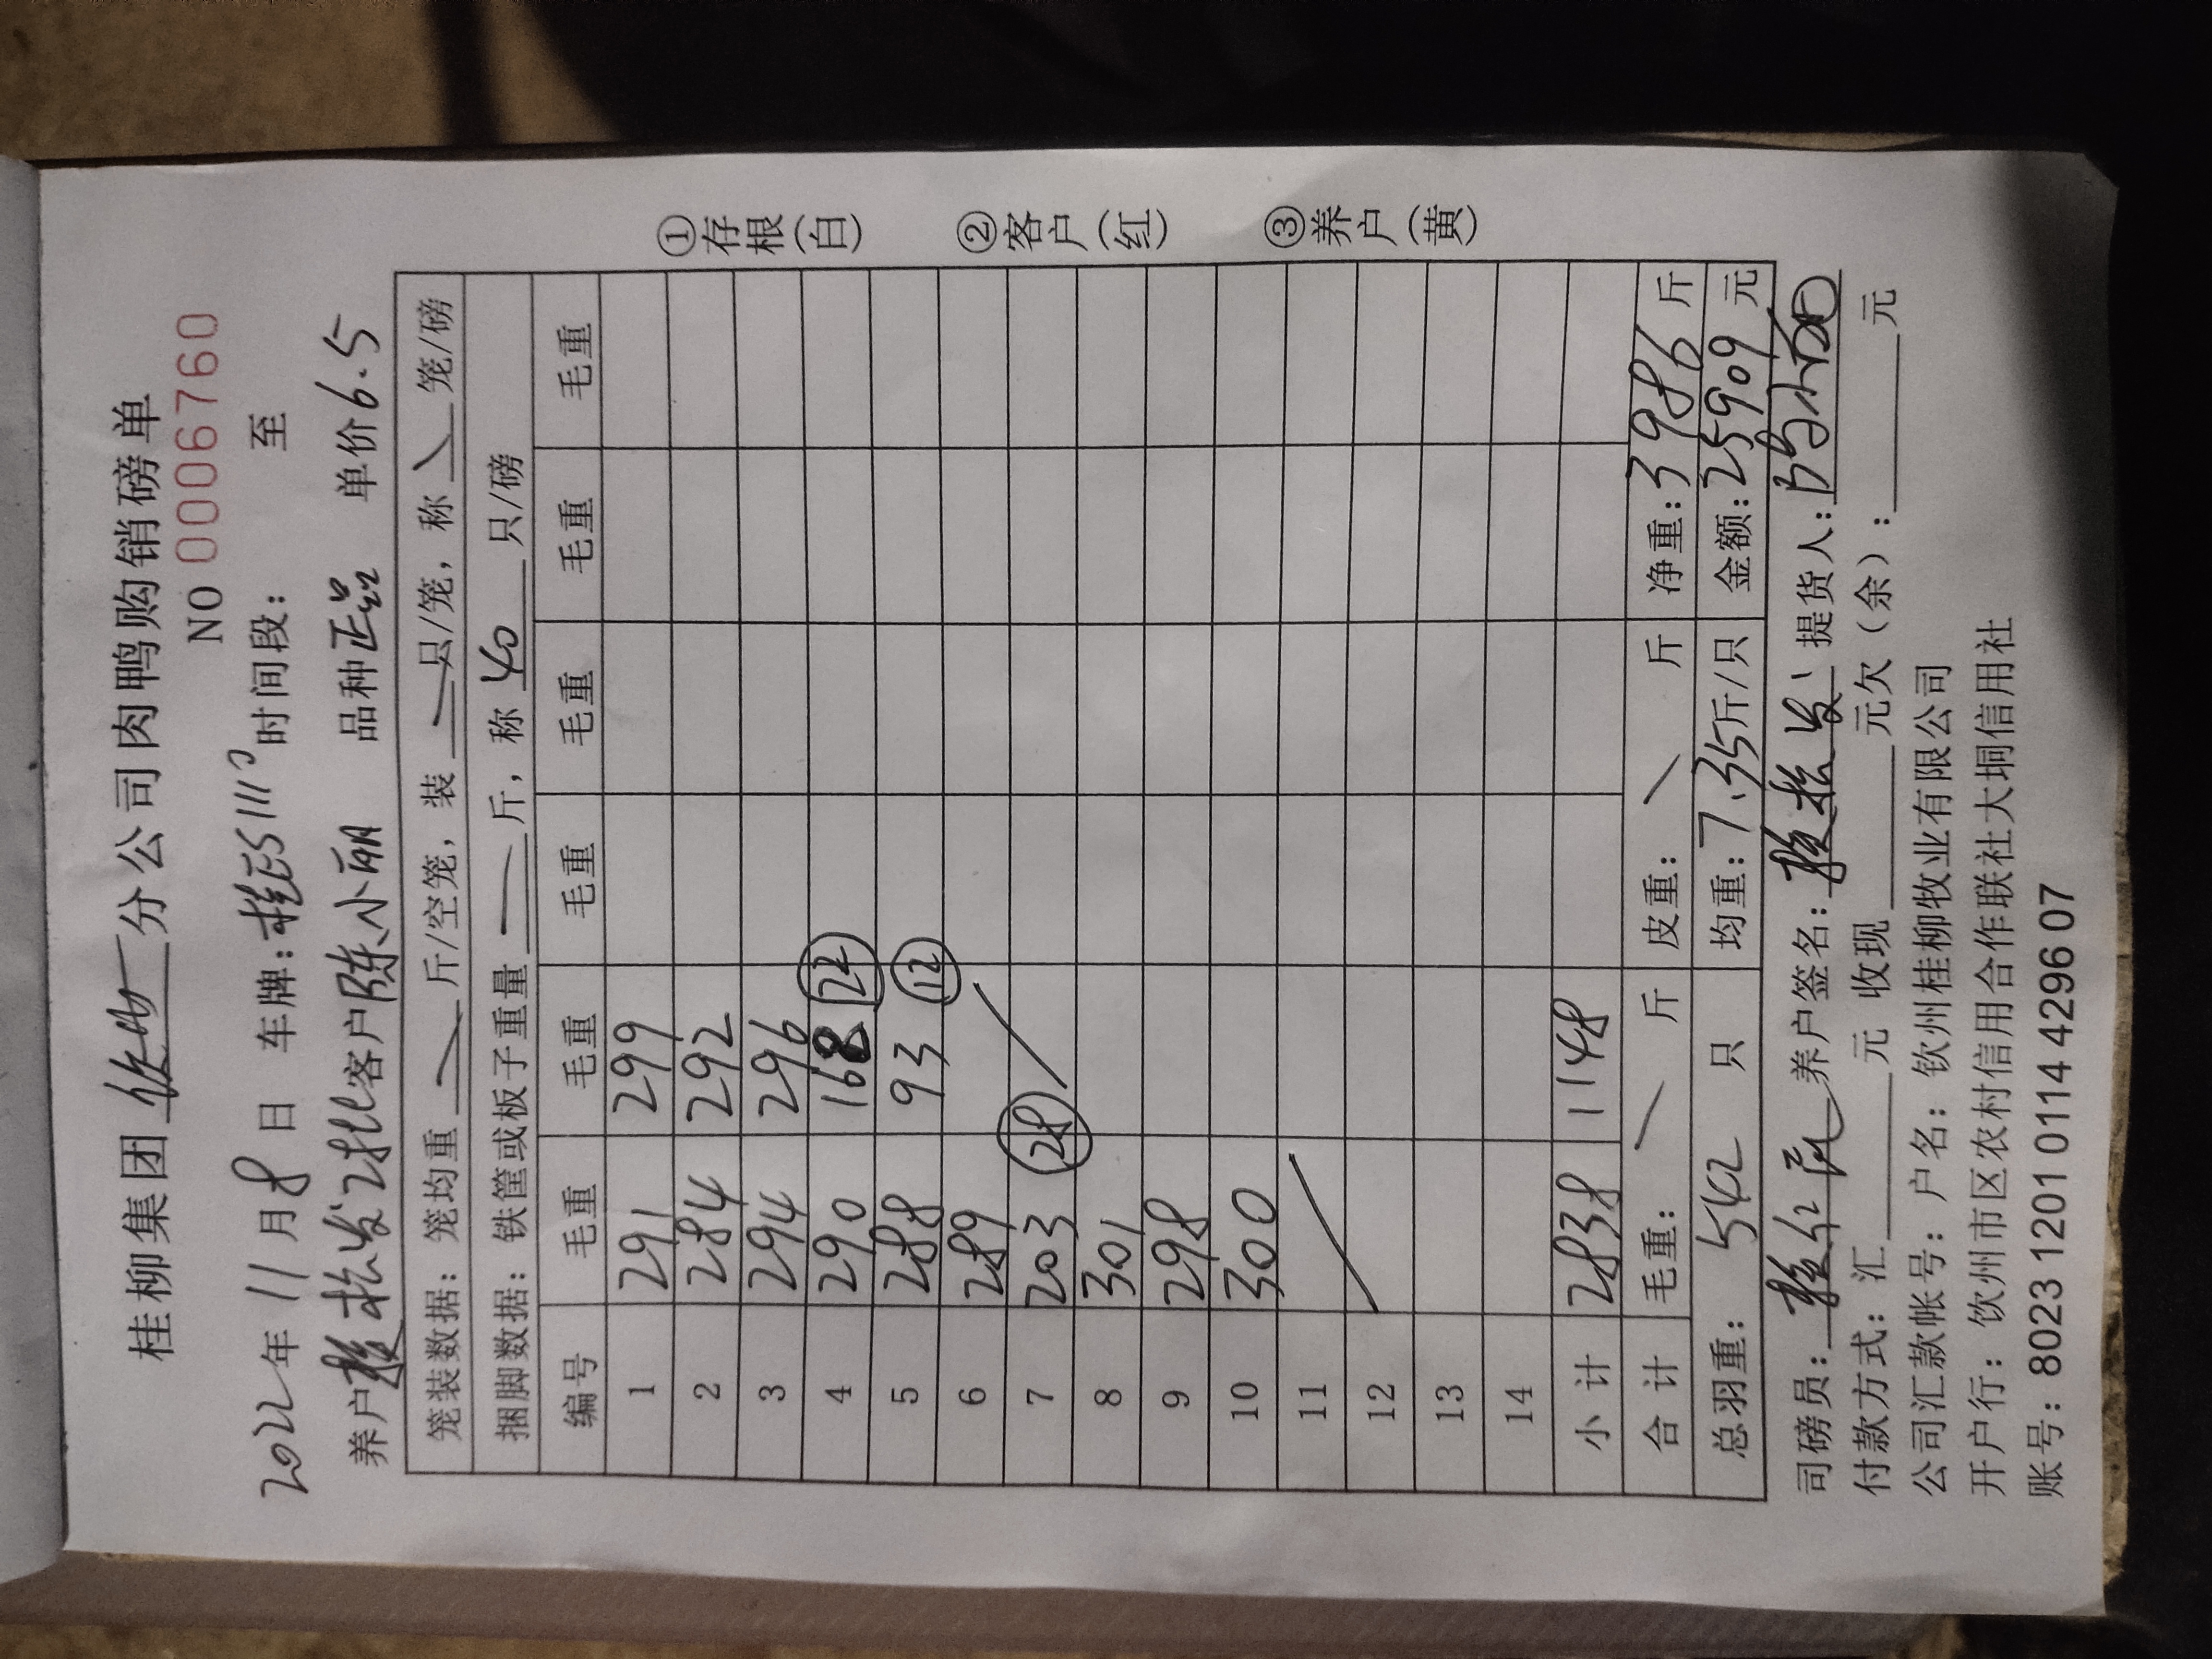 桂柳集团 分公司肉鸭购销磅单
NO 0006760
2022年 11月8日 车牌:桂E5111 时间段: 至
养户 松发2批 客户陈小丽 品种正品 单价6.5
笼装数据:笼均重 斤/空笼,装 只/笼,称 笼/磅
捆脚数据:铁筐或板子重量 斤,称 40 只/磅
编号 毛重 毛重 毛重 毛重 毛重 毛重
1 291 299
2 284 292
3 294 296
4 290 168 22
5 288 93 12
6 289
7 203 28
8 301
9 298
10 300
11
12
13
14
小计 2838 1148
合计 毛重: 斤 皮重: 斤 净重:3986 斤
总羽重: 542 只 均重:7.35斤/只 金额:25909 元
司磅员: 养户签名: 松发 提货人:
付款方式:汇 元 收现 元欠(余): 元
公司汇款帐号:户名:钦州桂柳牧业有限公司
开户行:钦州市区农村信用合作联社大垌信用社
账号:8023 1201 0114 4296 07
①存根(白)
②客户(红)
③养户(黄)